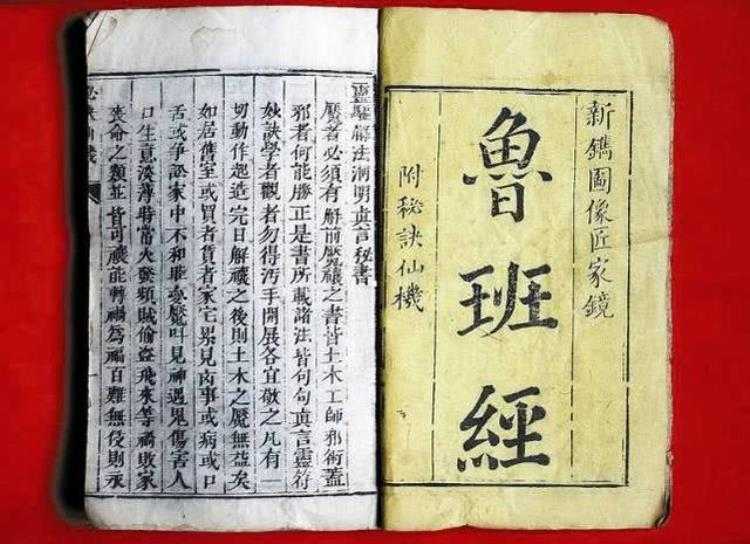 新鐫圖像匠家鏡
魯班經
附秘訣仙機
靈驅解法洞明真言秘書
魘者必須有解前魘禳之書皆土木工師邪術蓋
邪者何能勝正是書所載諸法皆句句真言靈符
妙訣學者觀者勿得汚手開展各宜敬之凡有一
切動作起造完日解禳之後則土木之魘無益矣
如居舊室或買者賃者家宅累見凶事或病或口
舌或爭訟家中不和睡夢魘叫見神遇鬼傷害人
口生意淡薄時當火發頻賊偷盜飛來等禍敗家
喪命之類並皆可禳能轉禍為福百難無侵則永
訣仙機